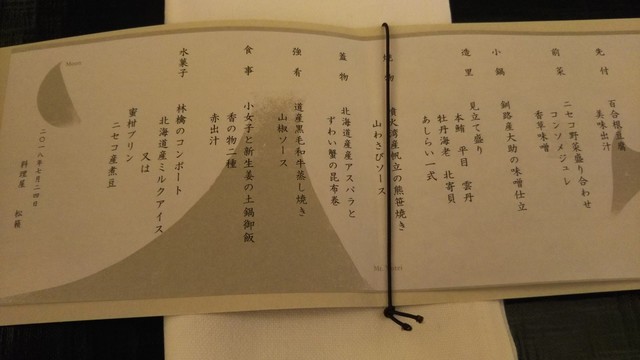 先付
百合根豆腐
美味出汁
前菜
ニセコ野菜盛り合わせ
コンソメジュレ
香草味噌
小鍋
釧路産大助の味噌仕立
造里
見立て盛り
本鮪 平目 雲丹
牡丹海老 北寄貝
あしらい一式
焼物
噴火湾産帆立の熊笹焼き
山わさびソース
蓋物
北海道産アスパラと
ずわい蟹の昆布巻
強肴
道産黒毛和牛蒸し焼き
山椒ソース
食事
小女子と新生姜の土鍋御飯
香の物二種
赤出汁
水菓子
林檎のコンポート
北海道産ミルクアイス
又は
蜜柑プリン
ニセコ産煮豆
二〇一八年七月二四日
料理屋
Moon